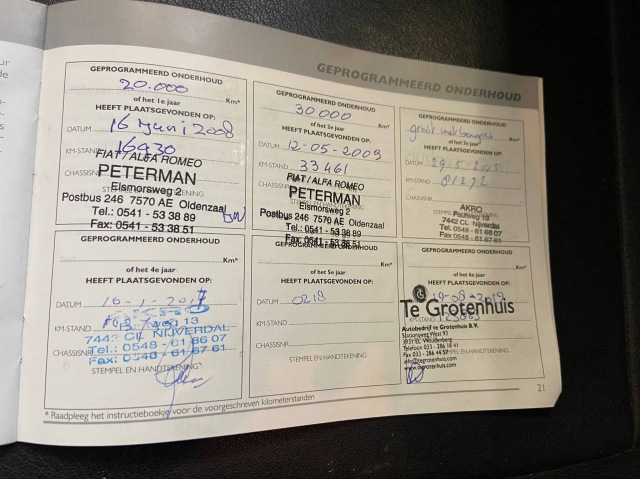 GEPROGRAMMEERD ONDERHOUD
GEPROGRAMMEERD ONDERHOUD
20.000
Km*
of het 1e jaar
HEEFT PLAATSGEVONDEN OP:
DATUM 16 juni 2008
KM-STAND 16430
FIAT/ALFA ROMEO
CHASSISNR
PETERMAN
Eismorsweg 2
Postbus 246 7570 AE Oldenzaal
Tel.: 0541 - 53 38 89
Fax: 0541 - 53 38 51
GEPROGRAMMEERD ONDERHOUD
30.000
Km*
of het 2e jaar
HEEFT PLAATSGEVONDEN OP:
DATUM 12-05-2009
KM-STAND 33461
FIAT/ALFA ROMEO
CHASSISNR
PETERMAN
Eismorsweg 2
Postbus 246 7570 AE Oldenzaal
Tel.: 0541 - 53 38 89
Fax: 0541 - 53 38 51
GEPROGRAMMEERD ONDERHOUD
Km*
of het 3e jaar
HEEFT PLAATSGEVONDEN OP:
DATUM
KM-STAND 81272
CHASSISNR
AKRO
7442 CL Nijverdal
Tel. 0548 - 61 86 07
Fax: 0548 - 61 67 61
GEPROGRAMMEERD ONDERHOUD
Km*
of het 4e jaar
HEEFT PLAATSGEVONDEN OP:
DATUM 16-1-2017
KM-STAND
13
CHASSISNR
7442 CL NIJVERDAL
Tel.: 0548 - 61 86 07
Fax: 0548 - 61 67 61
STEMPEL EN HANDTEKENING
GEPROGRAMMEERD ONDERHOUD
Km*
of het 5e jaar
HEEFT PLAATSGEVONDEN OP:
DATUM 0218
KM-STAND
CHASSISNR
STEMPEL EN HANDTEKENING
GEPROGRAMMEERD ONDERHOUD
Km*
of het 6e jaar
HEEFT PLAATSGEVONDEN OP:
Te Grotenhuis
KM-STAND
Autobedrijf te Grotenhuis B.V.
Stationsweg West 93
3931 EL Woudenberg
Telefoon 033 - 286 18 41
Fax 033 - 286 44 57
info@tegrotenhuis.com
www.tegrotenhuis.com
* Raadpleeg het instructieboekje voor de voorgeschreven kilometerstanden
21